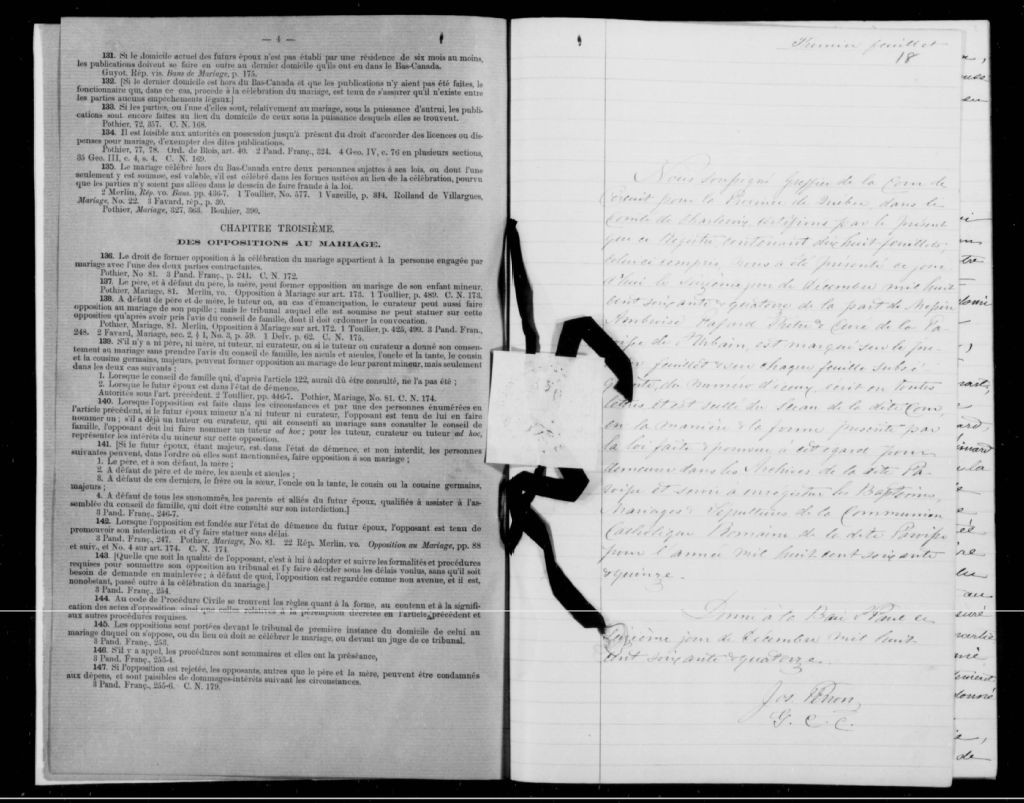 — 4 —
131. Si le domicile actuel des futurs époux n'est pas établi par une résidence de six mois au moins,
les publications doivent se faire en outre au dernier domicile qu'ils ont eu dans le Bas-Canada.
Guyot, Rép. vis. Bans de Mariage, p. 175.
132. [Si le dernier domicile est hors du Bas-Canada et que les publications n'y aient pas été faites, le
fonctionnaire qui, dans ce cas, procède à la célébration du mariage, est tenu de s'assurer qu'il n'existe entre
les parties aucuns empêchements légaux.]
133. Si les parties, ou l'une d'elles sont, relativement au mariage, sous la puissance d'autrui, les publi-
cations sont encore faites au lieu du domicile de ceux sous la puissance desquels elles se trouvent.
Pothier, 72, 357. C. N. 168.
134. Il est loisible aux autorités en possession jusqu'à présent du droit d'accorder des licences ou dis-
penses pour mariage, d'exempter des dites publications.
Pothier, 77, 78. Ord. de Blois, art. 40. 2 Pand. Franç., 324. 4 Geo. IV, c. 76 en plusieurs sections,
35 Geo. III, c. 4, s. 4. C. N. 169.
135. Le mariage célébré hors du Bas-Canada entre deux personnes sujettes à ses lois, ou dont l'une
seulement y est soumise, est valable, s'il est célébré dans les formes usitées au lieu de la célébration, pourvu
que les parties n'y soient pas allées dans le dessein de faire fraude à la loi.
2 Merlin, Rép. vo. Bans, pp. 436-7. 1 Toullier, No. 577. 1 Vazeille, p. 314. Rolland de Villargues,
Mariage, No. 22. 3 Favard, rép., p. 30.
Pothier, Mariage, 327, 363. Bouhier, 390.
CHAPITRE TROISIÈME.
DES OPPOSITIONS AU MARIAGE.
136. Le droit de former opposition à la célébration du mariage appartient à la personne engagée par
mariage avec l'une des deux parties contractantes.
Pothier, No 81. 3 Pand. Franç., p. 241. C. N. 172.
137. Le père, et à défaut du père, la mère, peut former opposition au mariage de son enfant mineur.
Pothier, Mariage, 81. Merlin, vo. Opposition à Mariage sur art. 173. 1 Toullier, p. 489. C. N. 173.
138. A défaut de père et de mère, le tuteur ou, au cas d'émancipation, le curateur peut aussi faire
opposition au mariage de son pupille; mais le tribunal auquel elle est soumise ne peut statuer sur cette
opposition qu'après avoir pris l'avis du conseil de famille, dont il doit ordonner la convocation.
Pothier, Mariage, 81. Merlin, Opposition à Mariage sur art. 172. 1 Toullier, p. 425, 499. 3 Pand. Fran.,
248. 2 Favard, Mariage, sec. 2, § 4, No. 3, p. 59. 1 Delv. p. 62. C. N. 175.
139. S'il n'y a ni père, ni mère, ni tuteur, ni curateur, ou si le tuteur ou curateur a donné son consen-
tement au mariage sans prendre l'avis du conseil de famille, les aïeuls et aïeules, l'oncle et la tante, le cousin
et la cousine germains, majeurs, peuvent former opposition au mariage de leur parent mineur, mais seulement
dans les deux cas suivants:
1. Lorsque le conseil de famille qui, d'après l'article 122, aurait dû être consulté, ne l'a pas été;
2. Lorsque le futur époux est dans l'état de démence.
Autorités sous l'art. précédent. 2 Toullier, pp. 446-7. Pothier, Mariage, No. 81. C. N. 174.
140. Lorsque l'opposition est faite dans les circonstances et par une des personnes énumérées en
l'article précédent, si le futur époux mineur n'a ni tuteur ni curateur, l'opposant est tenu de lui en faire
nommer un; s'il a déjà un tuteur ou curateur, qui ait consenti au mariage sans consulter le conseil de
famille, l'opposant doit lui faire nommer un tuteur ad hoc; pour les tuteur, curateur ou tuteur ad hoc,
représenter les intérêts du mineur sur cette opposition.
141. [Si le futur époux, étant majeur, est dans l'état de démence, et non interdit, les personnes
suivantes peuvent, dans l'ordre où elles sont mentionnées, faire opposition à son mariage;
1. Le père, et à son défaut, la mère;
2. A défaut de père et de mère, les aïeuls et aïeules;
3. A défaut de ces derniers, le frère ou la sœur, l'oncle ou la tante, le cousin ou la cousine germains,
majeurs;
4. A défaut de tous les susnommés, les parents et alliés du futur époux, qualifiés à assister à l'as-
semblée du conseil de famille, qui doit être consulté sur son interdiction.]
3 Pand. Franç., 246-7.
142. Lorsque l'opposition est fondée sur l'état de démence du futur époux, l'opposant est tenu de
promouvoir son interdiction et d'y faire statuer sans délai.
3 Pand. Franç., 247. Pothier, Mariage, No. 81. 22 Rép. Merlin. vo. Opposition au Mariage, pp. 88
et suiv., et No. 4 sur art. 174. C. N. 174.
143. [Quelle que soit la qualité de l'opposant, c'est à lui à adopter et suivre les formalités et procédures
requises pour soumettre son opposition au tribunal et l'y faire décider sous les délais voulus, sans qu'il soit
besoin de demande en mainlevée; à défaut de quoi, l'opposition est regardée comme non avenue, et il est,
nonobstant, passé outre à la célébration du mariage.]
3 Pand. Franç., 254.
144. Au code de Procédure Civile se trouvent les règles quant à la forme, au contenu et à la signifi-
cation des actes d'opposition, ainsi que celles relatives à la péremption décrétée en l'article précédent et
aux autres procédures requises.
145. Les oppositions sont portées devant le tribunal de première instance du domicile de celui au
mariage duquel on s'oppose, ou du lieu où doit se célébrer le mariage, ou devant un juge de ce tribunal.
3 Pand. Franç., 253.
146. S'il y a appel, les procédures sont sommaires et elles ont la préséance,
3 Pand. Franç., 253-4.
147. Si l'opposition est rejetée, les opposants, autres que le père et la mère, peuvent être condamnés
aux dépens, et sont passibles de dommages-intérêts suivant les circonstances.
3 Pand. Franç., 255-6. C. N. 179.
Premier feuillet
18
Nous soussigné, Greffier de la Cour de
Circuit pour la Province de Québec, dans le
Comté de Charlevoix, certifions par le présent
que ce Registre, contenant dix huit feuillets,
celui ci compris, nous a été présenté ce jour
d'hui le onzième jour de décembre mil huit
cent soixante & quatorze de la part de Messire
Ambroise Fafard Prêtre & Curé de la Pa-
roisse de St Urbain, est marqué sur le pre-
mier feuillet & sur chaque feuille subsé-
quente, du numéro d'icelui, écrit en toutes
lettres, et est scellé du Sceau de la dite Cour,
en la manière & la forme prescrite par
la loi faite & pourvue, à cet égard pour
demeurer dans les Archives de la dite Pa-
roisse et servir à enregistrer les Baptêmes,
Mariages & Sépultures de la Communion
Catholique Romaine de la dite Paroisse
pour l'année mil huit cent soixante
& quinze.
Donné à la Baie St Paul ce
onzième jour de décembre mil huit
cent soixante & quatorze.
Jos. Perron,
G. C. C.